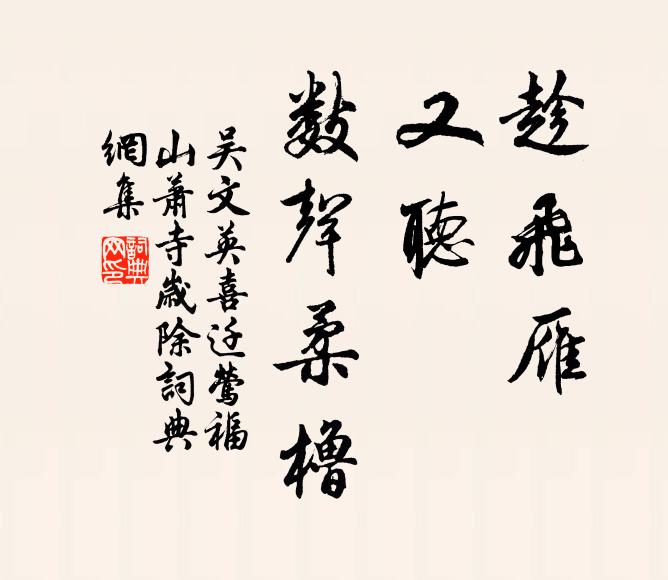 趁飛雁
又聽
數聲柔櫓
吳文英喜迁鶯福
山蕭寺歲除詞典
網集
詞典
网印